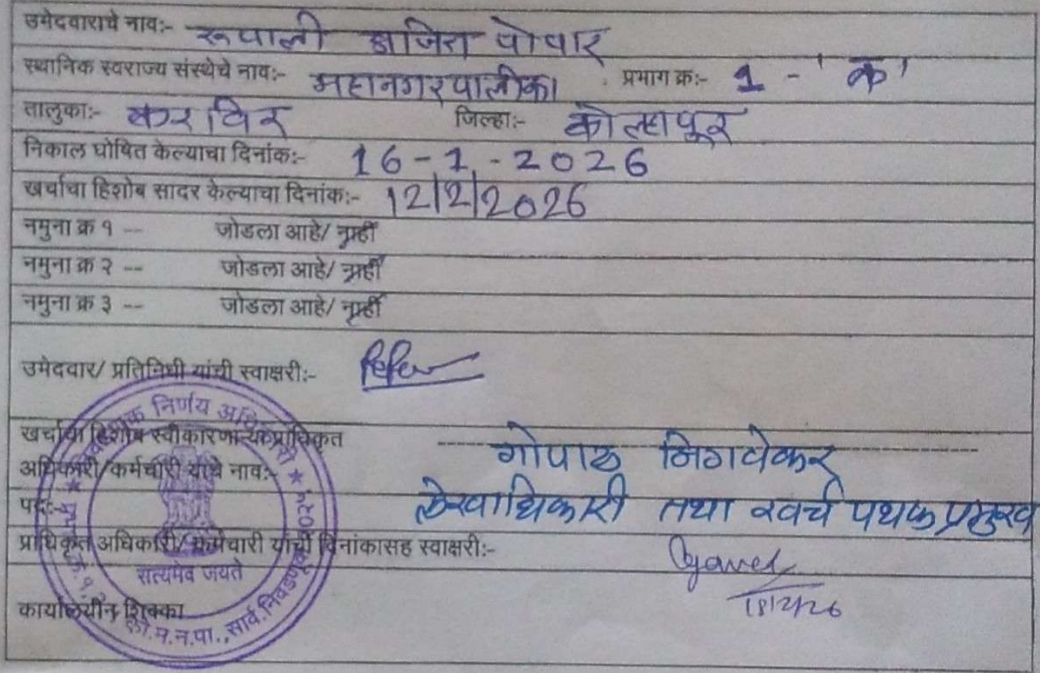 उमेदवाराचे नाव:- रुपाली अजित पोवार
स्थानिक स्वराज्य संस्थेचे नाव:- महानगरपालीका प्रभाग क्र:- 1 - 'क'
तालुका:- करविर जिल्हा:- कोल्हापूर
निकाल घोषित केल्याचा दिनांक:- 16-1-2026
खर्चाचा हिशोब सादर केल्याचा दिनांक:- 12/2/2026
नमुना क्र १ -- जोडला आहे/ नाही
नमुना क्र २ -- जोडला आहे/ नाही
नमुना क्र ३ -- जोडला आहे/ नाही
उमेदवार/ प्रतिनिधी यांची स्वाक्षरी:-
खर्चाचा हिशोब स्वीकारणाऱ्या प्राधिकृत
अधिकारी/कर्मचारी यांचे नाव:- गोपाळ निगवेकर
पद:- लेखाधिकारी तथा खर्च पथक प्रमुख
प्राधिकृत अधिकारी/ कर्मचारी यांची दिनांकासह स्वाक्षरी:-
कार्यालयीन शिक्का
निर्णय अधिकारी
सत्यमेव जयते
को.म.न.पा., सार्व.निवडणूक